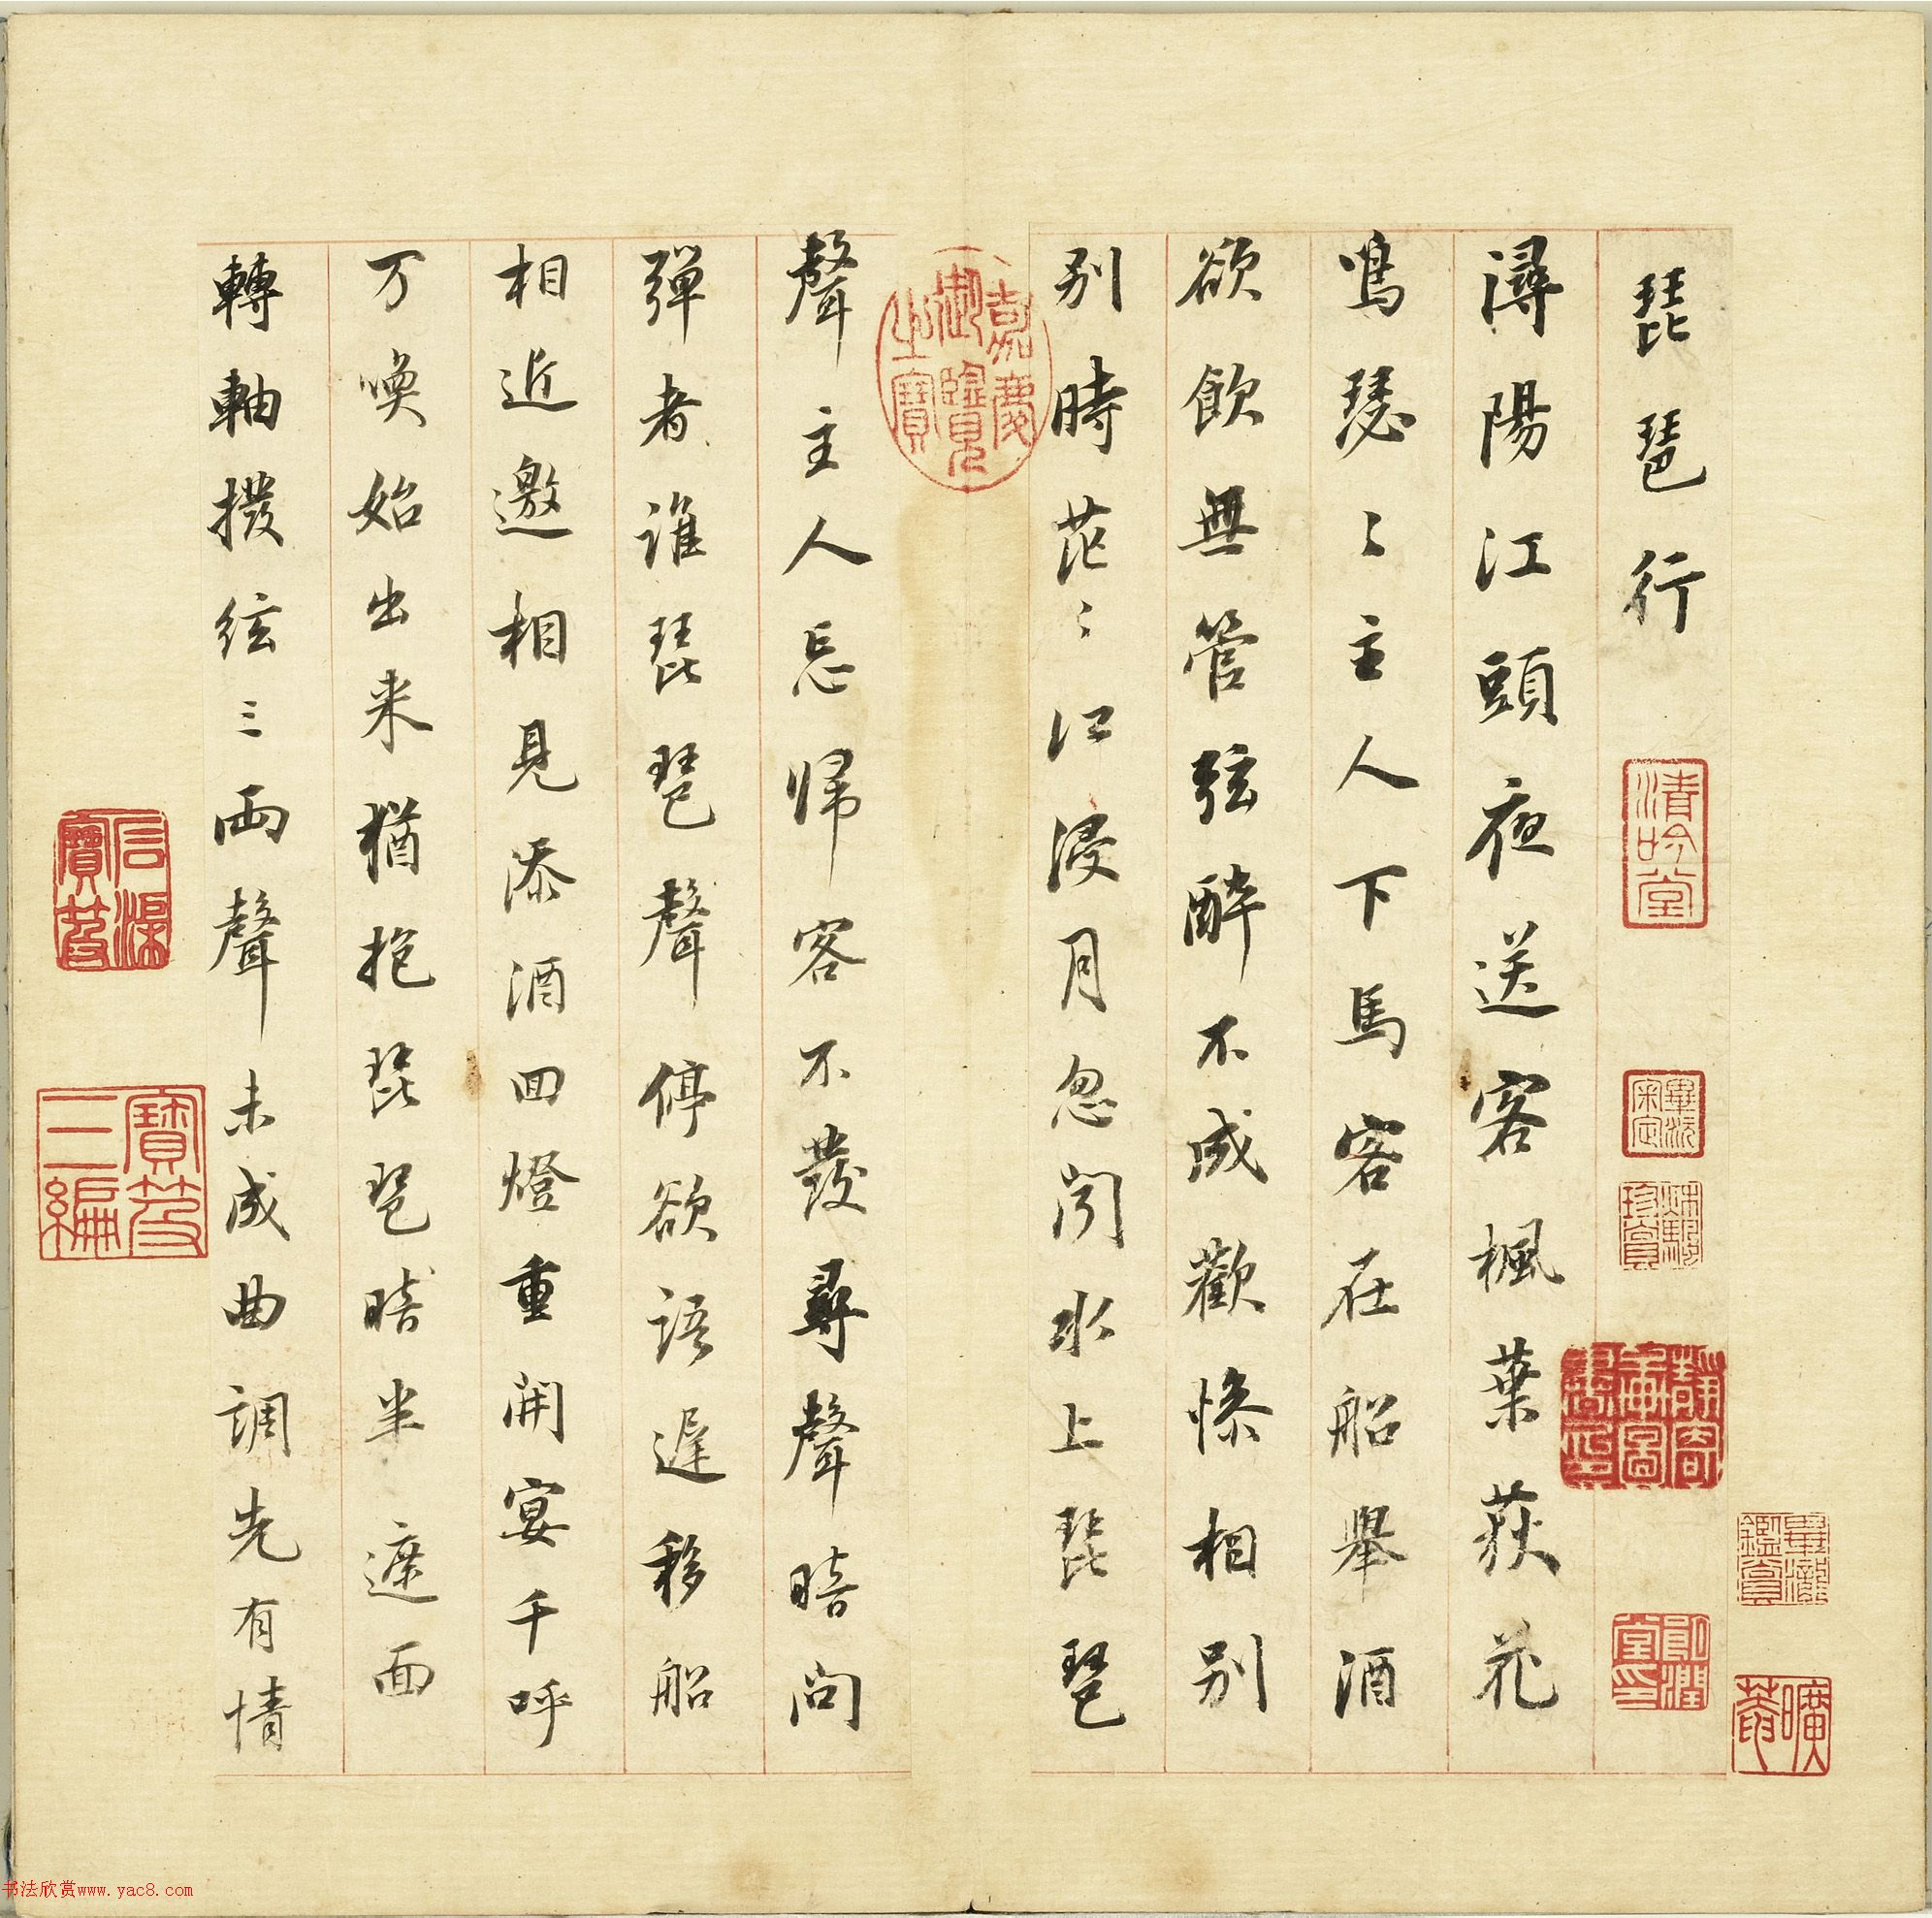 琵琶行
潯陽江頭夜送客楓葉荻花
鳴瑟〻主人下馬客在船舉酒
欲飲無管弦醉不成歡慘相別
別時茫〻江浸月忽聞水上琵琶
聲主人忘歸客不發尋聲暗問
彈者誰琵琶聲停欲語遲移船
相近邀相見添酒回燈重開宴千呼
万喚始出来猶抱琵琶暗半遮面
轉軸撥絃三兩聲未成曲調先有情
清吟堂
嘉慶御覽之寶
寶笈三編
书法欣赏www.yac8.com